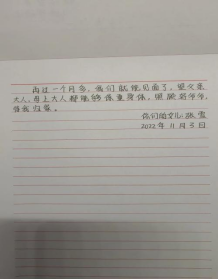 再过一个月多，我们就能见面了，望父亲
大人、母上大人都能够保重身体，照顾好爷爷，
待我归家。
你们的女儿：张雪
2022年11月5日